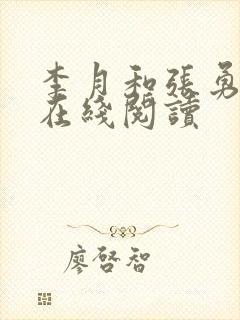 李月和張勇
在綫閱讀
廖啓智